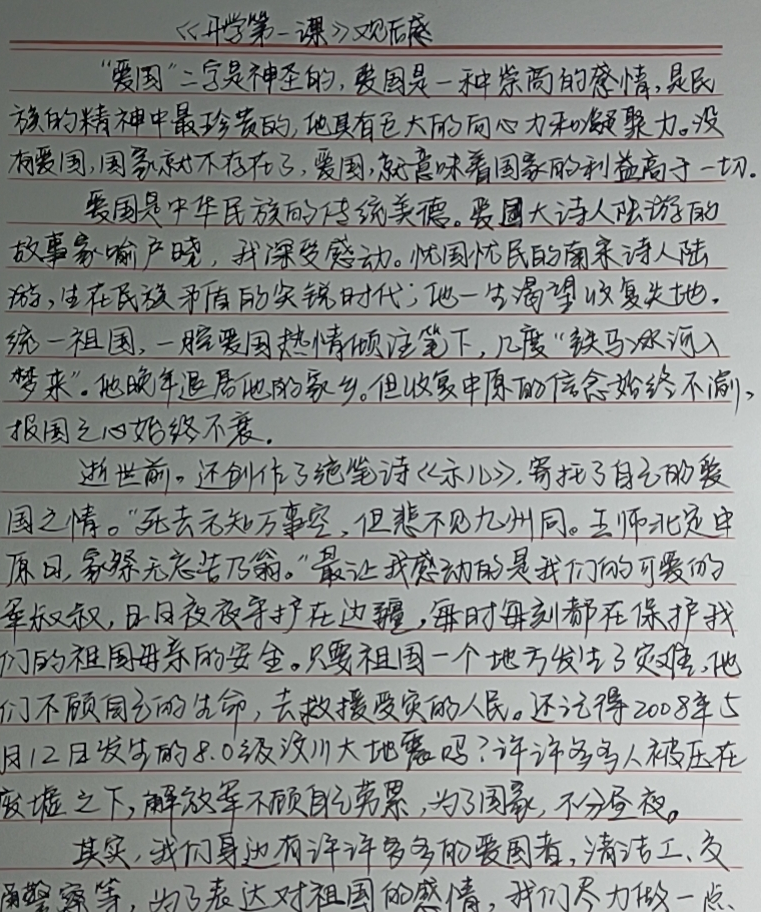 《开学第一课》观后感
“爱国”二字是神圣的，爱国是一种崇高的感情，是民
族的精神中最珍贵的，他具有巨大的向心力和凝聚力。没
有爱国，国家就不存在了，爱国，就意味着国家的利益高于一切．
爱国是中华民族的传统美德。爱国大诗人陆游的
故事家喻户晓，我深受感动。忧国忧民的南宋诗人陆
游，生在民族矛盾的尖锐时代；他一生渴望收复失地．
统一祖国，一腔爱国热情倾注笔下，几度“铁马冰河入
梦来”．他晚年退居他的家乡。但收复中原的信念始终不渝，
报国之心始终不衰．
逝世前。还创作了绝笔诗《示儿》，寄托了自己的爱
国之情。“死去元知万事空，但悲不见九州同。王师北定中
原日，家祭无忘告乃翁。”最让我感动的是我们的可爱的
军叔叔，日日夜夜守护在边疆，每时每刻都在保护我
们的祖国母亲的安全。只要祖国一个地方发生了灾难，他
们不顾自己的生命，去救援受灾的人民。还记得2008年5
月12日发生的8.0级汶川大地震吗？许许多多人被压在
废墟之下，解放军不顾自己劳累，为了国家，不分昼夜。
其实，我们身边有许许多多的爱国者，清洁工、交
通警察等，为了表达对祖国的感情，我们尽力做一点、